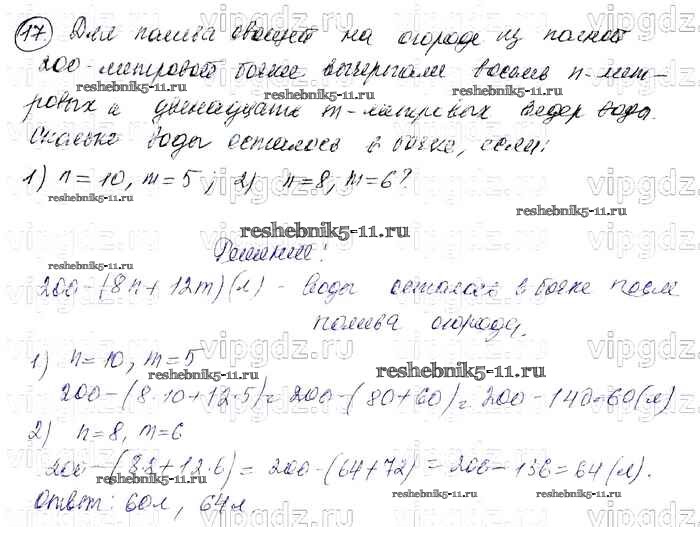 17 Для полива овощей на огороде из полной
200-литровой бочки вычерпали восемь n-лит-
ровых и двенадцать m-литровых ведер воды.
Сколько воды осталось в бочке, если:
1) n=10, m=5; 2) n=8, m=6?
Решение:
200-(8n+12m)(л) - воды осталось в бочке после
полива огорода.
1) n=10, m=5
200-(8·10+12·5)=200-(80+60)=200-140=60(л)
2) n=8, m=6
200-(8·8+12·6)=200-(64+72)=200-136=64(л).
Ответ: 60л, 64л
reshebnik5-11.ru
vipgdz.ru